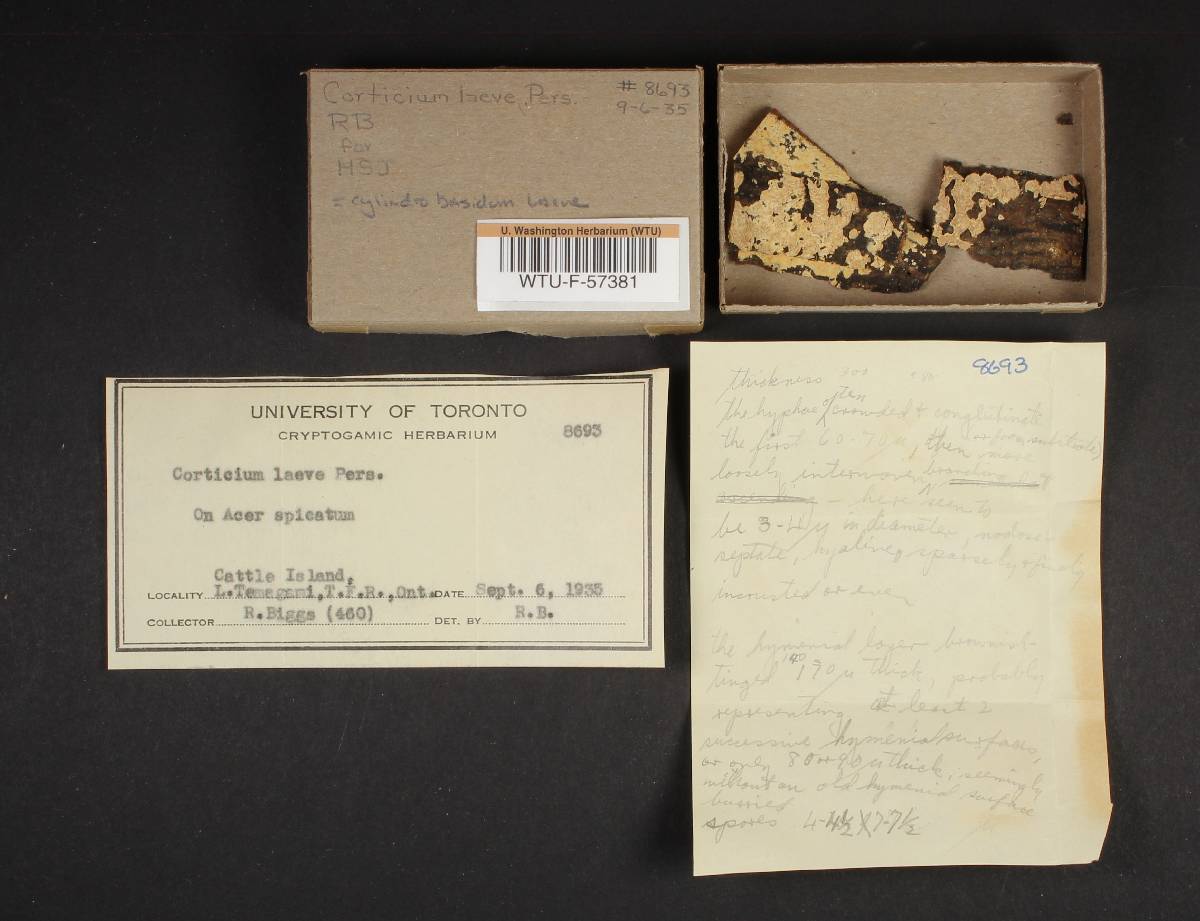 Corticium laeve Pers. #8693
9-6-35
RB
for
HSJ
= cylindrobasidum laeve
U. Washington Herbarium (WTU)
WTU-F-57381
UNIVERSITY OF TORONTO
CRYPTOGAMIC HERBARIUM 8693
Corticium laeve Pers.
On Acer spicatum
Cattle Island,
LOCALITY L.Temagami,T.F.R.,Ont. DATE Sept. 6, 1935
COLLECTOR R.Biggs (460) DET. BY R.B.
8693
thickness 300
the hyphae often crowded & conglutinate
the first 60-70 u, then more
loosely interwoven
here seen to
be 3-4 u in diameter, nodose-
septate, hyaline, sparsely & finely
incrusted or even
the hymenial layer brownish-
tinged 140 190 u thick, probably
representing at least 2
successive hymenial surfaces,
or only 80 or 90 u thick, seemingly
without an old hymenial surface
buried
spores 4-4½ X 7-7½